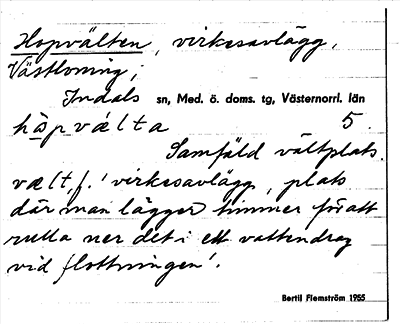 Hopvälten, virkesavlägg,
Västloning;
Indals sn, Med. ö. doms. tg, Västernorrl. län
hȧ̱pvǽlta 5.
Samfäld vältplats.
vælt, f. 'virkesavlägg, plats
där man lägger timmer för att
rulla ner det i ett vattendrag
vid flottningen'.
Bertil Flemström 1955